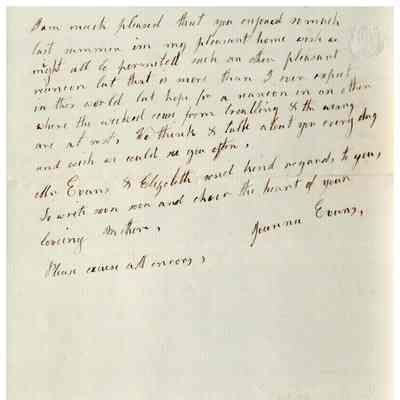 I am much pleased that you enjoyed so much
last summer in my pleasant home wish we
might all be permitted such an other pleasant
reunion but that is more than I ever expect
in this world but hope for a reunion in an other
where the wicked cease from troubling & the weary
are at rest, We think & talk about you every day
and wish we could see you often,
Mr Evans & Elizabeth send kind regards to you,
Do write soon and cheer the heart of your
loving Mother,
Joanna Evans,
Please excuse all errors,